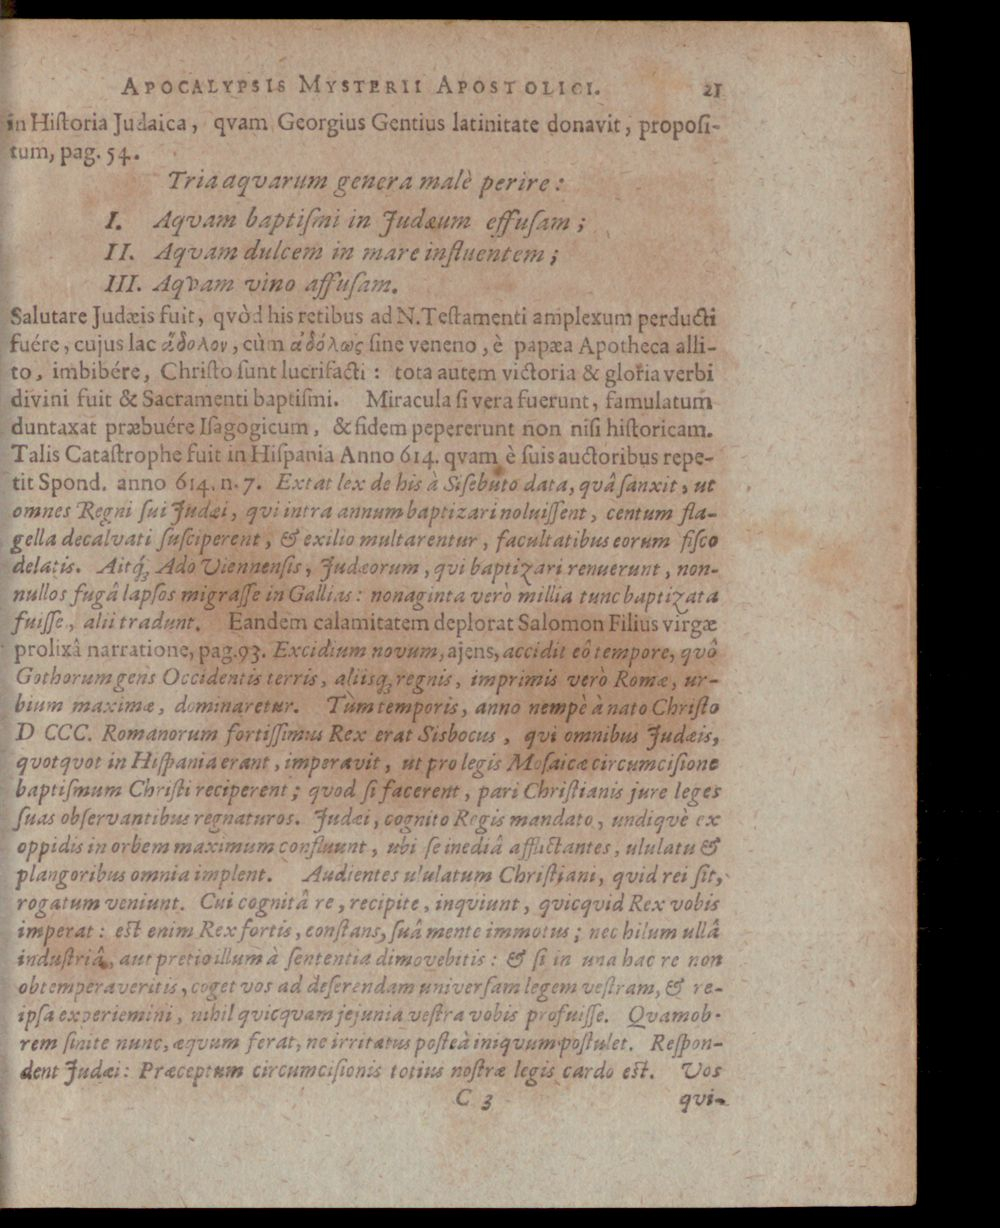 APOCALYPSIS MYSTERII APOSTOLICI. 21
in Hiſtoria Judaica, qvam Georgius Gentius latinitate donavit, propoſi-
tum, pag. 54.
Tria aqvarum genera malè perire:
I. Aqvam baptiſmi in Judæum effuſam;
II. Aqvam dulcem in mare influentem;
III. Aqvam vino affuſam.
Salutare Judæis fuit, qvòd his retibus ad N. Teſtamenti amplexum perducti
fuére, cujus lac ἄδολον, cùm ἀδόλως ſine veneno, è papæa Apotheca alli-
to, imbibére, Chriſto ſunt lucrifacti: tota autem victoria & gloria verbi
divini fuit & Sacramenti baptiſmi. Miracula ſi vera fuerunt, famulatum
duntaxat præbuére Iſagogicum, & fidem pepererunt non niſi hiſtoricam.
Talis Cataſtrophe fuit in Hiſpania Anno 614. qvam è ſuis auctoribus repe-
tit Spond. anno 614. n. 7. Extat lex de his à Siſebuto data, quâ ſanxit, ut
omnes Regni ſui Judæi, qui intra annum baptizari noluiſſent, centum fla-
gella decalvati ſuſciperent, & exilio multarentur, facultatibus eorum fiſco
delatis. Aitq́ꝫ Ado Viennenſis, Judæorum, qui baptizari renuerunt, non-
nullos fugâ lapſos migraſſe in Gallias: nonaginta verò millia tunc baptizata
fuiſſe, alii tradunt. Eandem calamitatem deplorat Salomon Filius virgæ
prolixâ narratione, pag. 93. Excidium novum, ajens, accidit eô tempore, quô
Gothorum gens Occidentis terris, aliisqꝫ regnis, imprimis verò Romæ, ur-
bium maximæ, dominaretur. Tùm temporis, anno nempè à nato Chriſto
D CCC. Romanorum fortiſſimus Rex erat Sisbocus, qui omnibus Judæis,
quotquot in Hiſpania erant, imperavit, ut pro legis Moſaicæ circumciſione
baptiſmum Chriſti reciperent; quod ſi facerent, pari Chriſtianis jure leges
ſuas obſervantibus regnaturos. Judæi, cognito Regis mandato, undiqve ex
oppidis in orbem maximum confluunt, ubi ſe inediâ afflictantes, ululatu &
plangoribus omnia implent. Audientes ululatum Chriſtiani, quid rei ſit,
rogatum veniunt. Cui cognitâ re, recipite, inquiunt, quicquid Rex vobis
imperat: eſt enim Rex fortis, conſtans, ſuâ mente immotus; nec hilum ullâ
induſtriâ, aut pretio illum à ſententia dimovebitis: & ſi in una hac re non
obtemperaveritis, coget vos ad deferendam univerſam legem veſtram, & re-
ipſa experiemini, nihil quicquam jejunia veſtra vobis profuiſſe. Quamob-
rem ſinite nunc, æquum ferat, ne irritatus poſteà iniquum poſtulet. Reſpon-
dent Judæi: Præceptum circumciſionis totius noſtræ legis cardo eſt. Vos
C 3 qui-